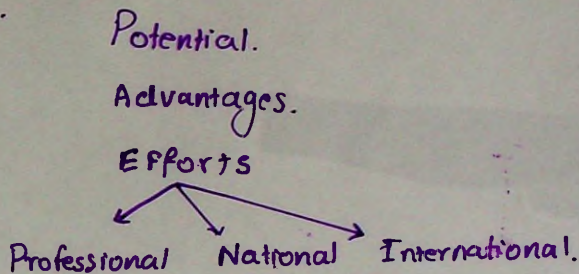 Potential.
Advantages.
Efforts
Professional National International.